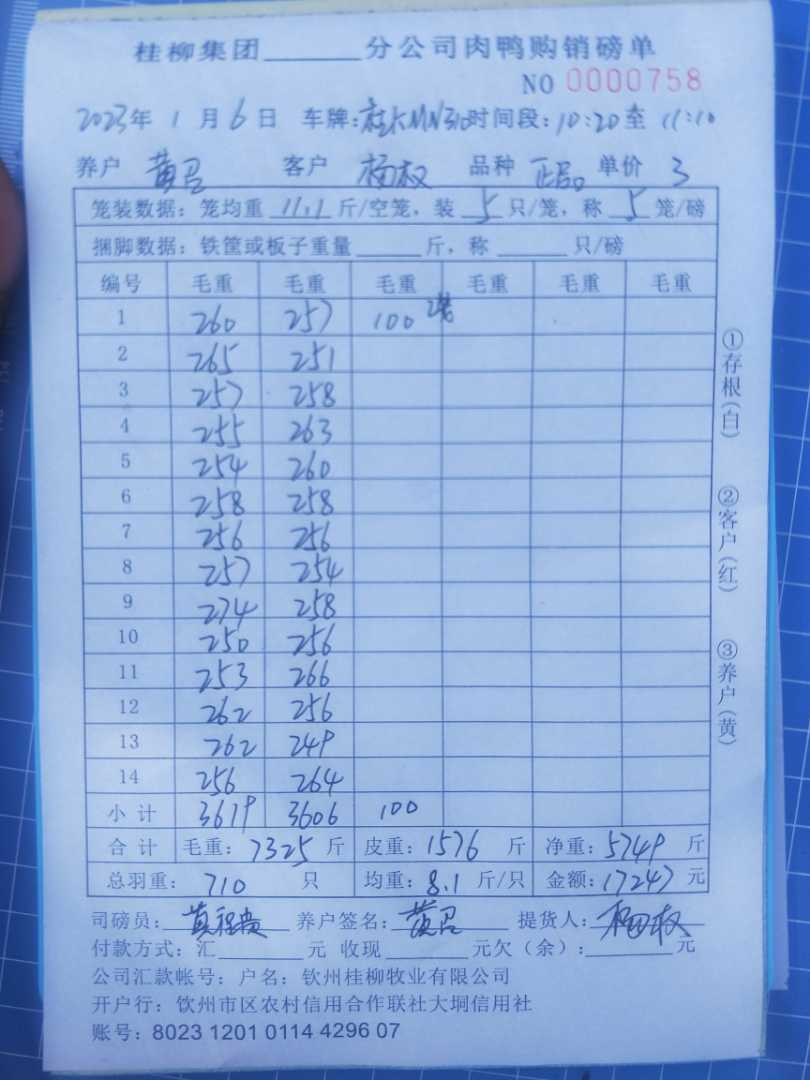 桂柳集团______分公司肉鸭购销磅单
NO 0000758
2023年 1月6日 车牌:桂KMN310时间段:10:20至 11:10
养户 黄召 客户 杨权 品种 正品 单价 3
笼装数据:笼均重 11.1 斤/空笼,装 5 只/笼,称 5 笼/磅
捆脚数据:铁筐或板子重量______斤,称______只/磅
编号 毛重 毛重 毛重 毛重 毛重 毛重
1 260 257 100
2 265 251
3 257 258
4 255 263
5 254 260
6 258 258
7 256 256
8 257 254
9 274 258
10 250 256
11 253 266
12 262 256
13 262 249
14 256 264
小计 3619 3606 100
合计 毛重:7325斤 皮重:1576斤 净重:5749斤
总羽重:710 只 均重:8.1斤/只 金额:17247元
司磅员: 养户签名:黄召 提货人:杨权
付款方式:汇______元 收现______元欠(余):______元
公司汇款帐号:户名:钦州桂柳牧业有限公司
开户行:钦州市区农村信用合作联社大垌信用社
账号:8023 1201 0114 4296 07
①存根(白)
②客户(红)
③养户(黄)